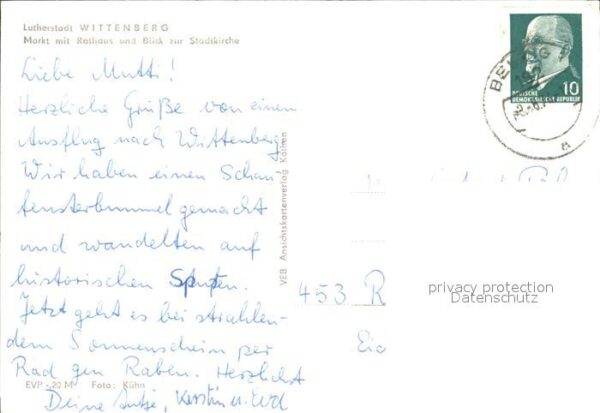 Lutherstadt WITTENBERG
Markt mit Rathaus und Blick zur Stadtkirche
Liebe Mutti!
Herzliche Grüße von einem
Ausflug nach Wittenberg.
Wir haben einen Schau-
fensterbummel gemacht
und wandelten auf
historischen Spuren.
Jetzt geht es bei strahlen-
dem Sonnenschein per
Rad gen Raben. Herzlichst
Deine Antje, Kerstin u.
EVP -.20 M Foto: Kühn
VEB Ansichtskartenverlag Köthen
10
DEUTSCHE
DEMOKRATISCHE REPUBLIK
453 R
privacy protection
Datenschutz